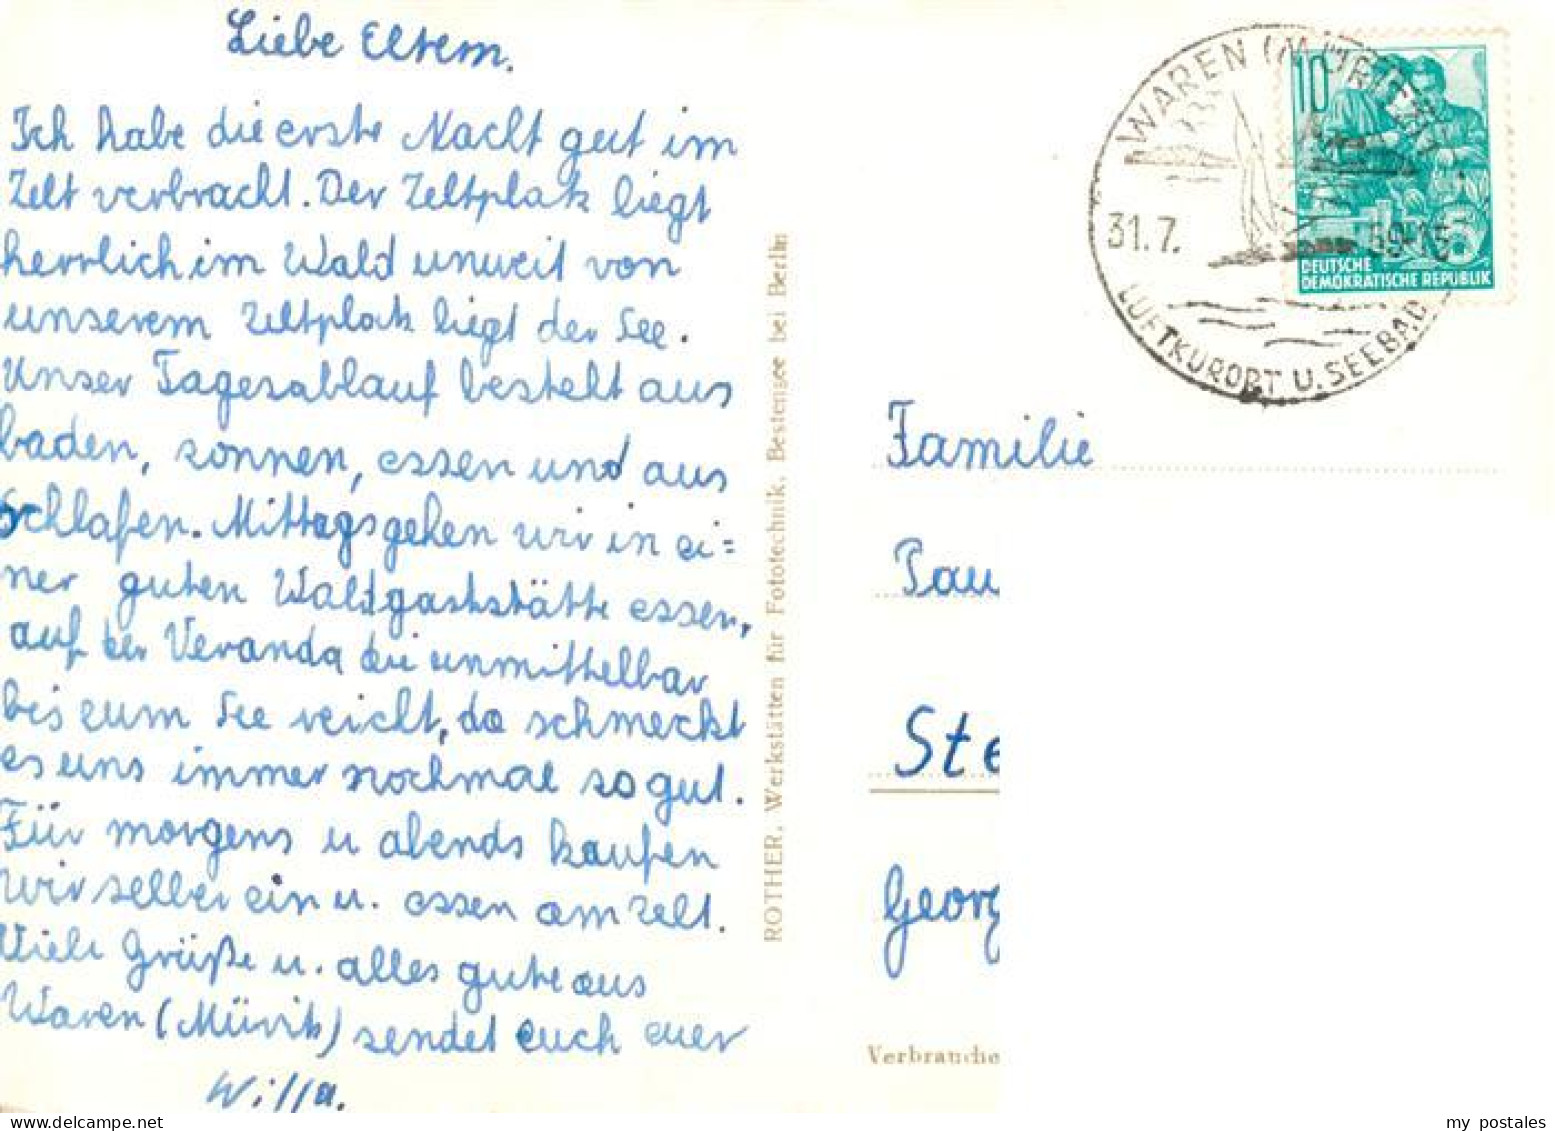 Liebe Eltern.
Ich habe die erste Nacht gut im
Zelt verbracht. Der Zeltplatz liegt
herrlich im Wald unweit von
unserem Zeltplatz liegt der See.
Unser Tagesablauf besteht aus
baden, sonnen, essen und aus
schlafen. Mittags gehen wir in ei=
ner guten Waldgaststätte essen,
auf der Veranda die unmittelbar
bis zum See reicht, da schmeckt
es uns immer nochmal so gut.
Für morgens u abends kaufen
wir selber ein u. essen am Zelt.
Viele Grüße u. alles gute aus
Waren (Müritz) sendet euch euer
ROTHER, Werkstätten für Fototechnik, Bestensee bei Berlin
WAREN (MÜRITZ)
31.7. 59-15
LUFTKURORT U. SEEBAD
10
5
DEUTSCHE
DEMOKRATISCHE REPUBLIK
Familie
Pau
Ste
Georg
Verbrauche
my postales